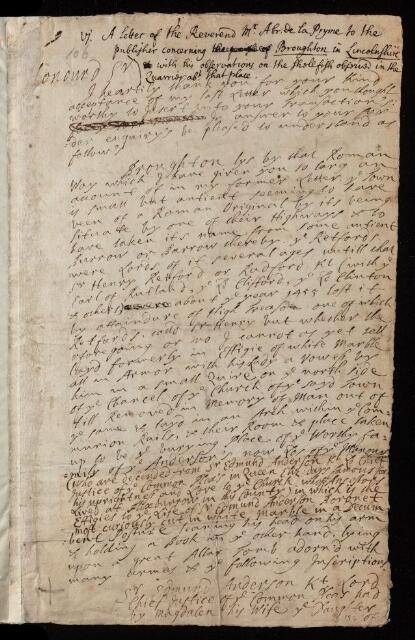 VI. A letter of the Reverend Mr. Abr. de la Pryme to the
publisher concerning Broughton in Lincolnshire
with his observations on the shellfish observed in the
Quarreys abt that place
Sr
I heartily thank you for your kind
acceptance of my last Letter which you thought
worthy to insert into your Transactions:
in answer to your
enquirys be pleas'd to understand as
follows.
Broughton lys by that Roman
Way which I have given you so large an
account of in my former Letter ye Town
is small but antient seeming to have
been of a Roman Original by its being
situate by one of their Highways & to
have taken its name from some antient
Barrow or Barrow thereby ye Retfords
were Lords of it several ages untill that
Sr Henry Retford or Radford Kt with ye
Earl of Rutland, ye Ld Clifford, ye Ld Clinton
& others about ye year 1455 lost it
by attaindure of High Treason one of which
Retfords, calld Sr Henry but whether the
aforegoing or no I cannot as yet tell
layd formerly in Effigie of white Marble
all in Armor with his Lady a Vowess by
him in a small Quire on ye north side
of ye Chancel of ye Church of ye sayd Town
till Removed in Memory of Man out of
ye same & layd in an Arch within ye Com-
munion Rails, & their Room & place taken
up to be ye burying place of ye Worthy fa-
mily of ye Anderson's now Lds of ye Mannour
(who are descended from Sr Edmund Anderson Kt Ld Chief
Justice of ye Common Pleas in Queen Eliz. days famous for
his uprightness and love to ye Church, whose
lived at in this County) in which is the
Effigies & Lady of Sr Edmund Anderson Baronet
most curiously cut in white marble in a Decum-
bent posture leaning his head on his arm
& holding a Book in ye other hand, lying
upon a great Altar Tomb adorn'd with
many armes & ye following Inscription
Sr Edmund Anderson Kt Lord
Chief Justice of ye Common Pleas had
by Magdalen his Wife ye Daughter